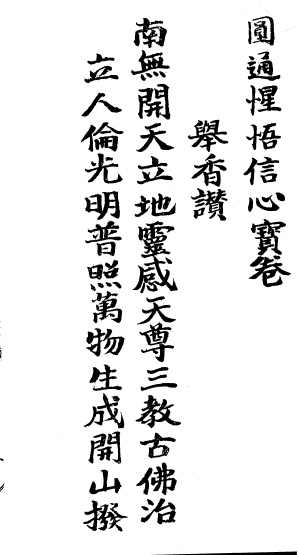 圓通惺悟信心寶卷
舉香讃
南無開天立地靈感天尊三教古佛治
立人倫光明普照萬物生成開山撥